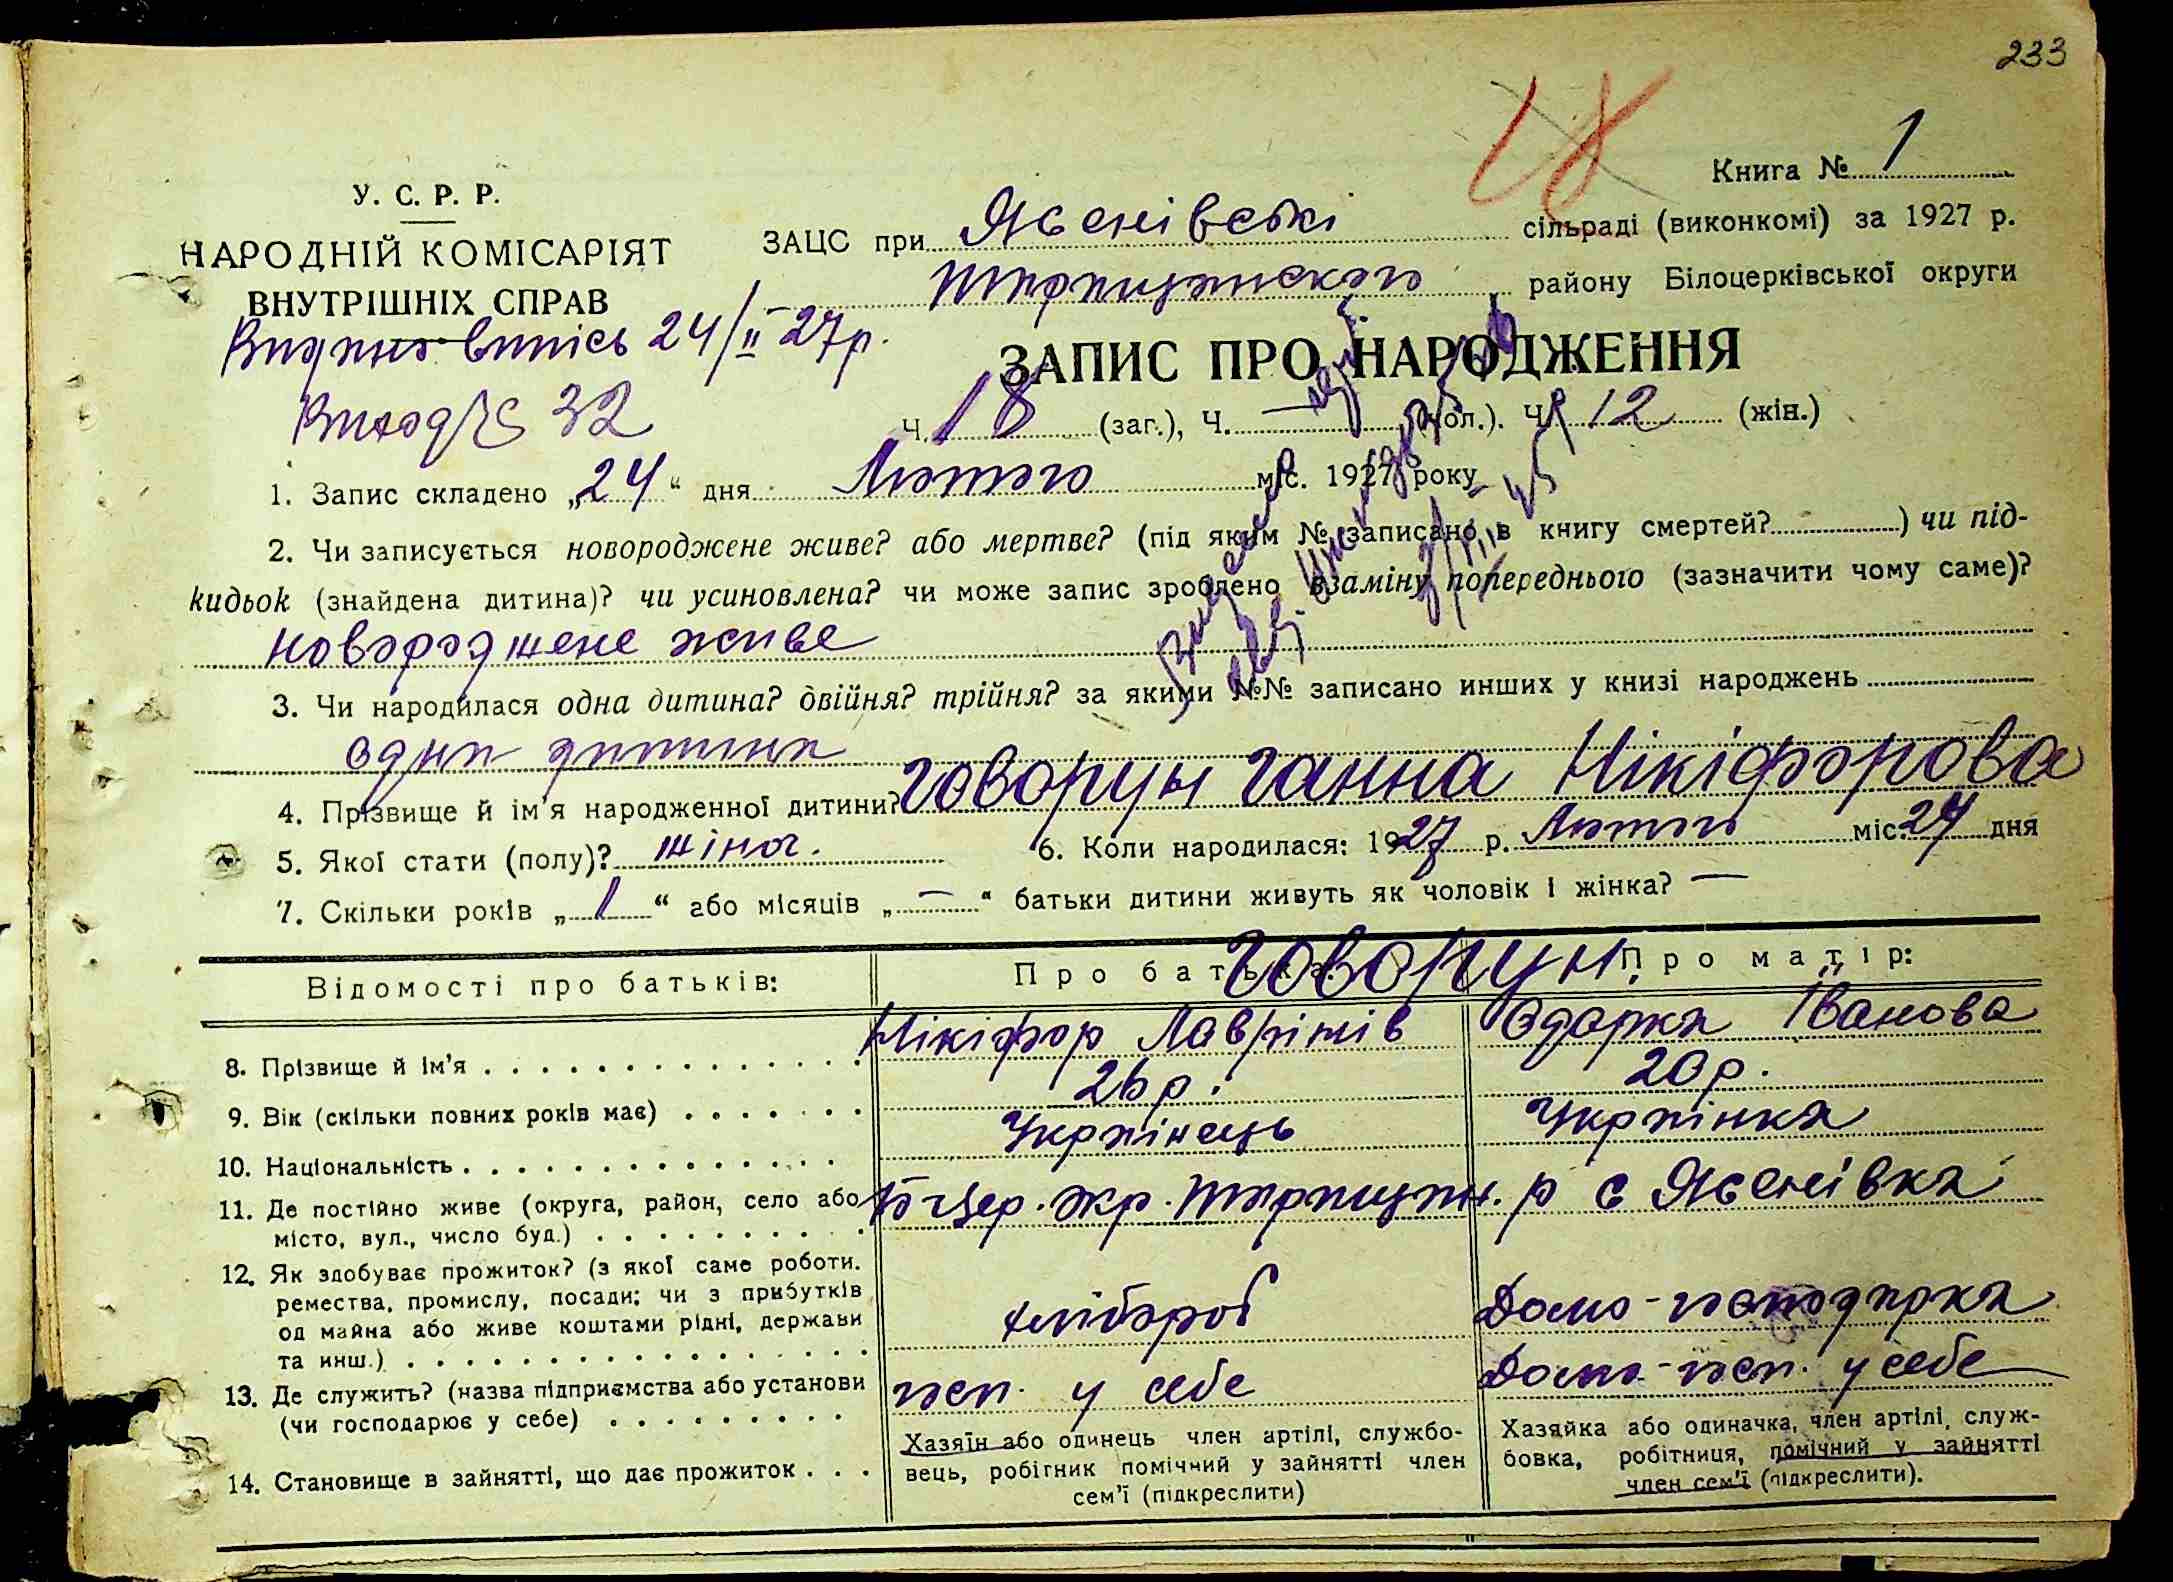 233
18
Книга № 1
У. С. Р. Р.
НАРОДНІЙ КОМІСАРІЯТ
ВНУТРІШНІХ СПРАВ
ЗАЦС при Ясенівські сільраді (виконкомі) за 1927 р.
Таращанского району Білоцерківської округи
Видано випісь 24/II 27р.
ЗАПИС ПРО НАРОДЖЕННЯ
32
Ч. 18 (заг.), Ч. — (чол.). Ч. 12 (жін.)
1. Запис складено „24“ дня Лютого міс. 1927 року
2. Чи записується новороджене живе? або мертве? (під яким № записано в книгу смертей?) чи під-
кидьок (знайдена дитина)? чи усиновлена? чи може запис зроблено взаміну попереднього (зазначити чому саме)?
новороджене живе
3. Чи народилася одна дитина? двійня? трійня? за якими №№ записано инших у книзі народжень
одна дитина
4. Прізвище й ім'я народженної дитини? Говорун Ганна Нікіфорова
5. Якої стати (полу)? жіноч. 6. Коли народилася: 1927 р. Лютого міс. 24 дня
7. Скільки років „1“ або місяців „—“ батьки дитини живуть як чоловік і жінка? —
Відомості про батьків: Про батька: Про матір:
Говорун.
8. Прізвище й ім'я Нікіфор Одарка Іванова
9. Вік (скільки повних років має) 26 р. 20 р.
10. Національність Українець Українка
11. Де постійно живе (округа, район, село або Б-Цер. окр. Таращан. р с Ясенівка
місто, вул., число буд.)
12. Як здобуває прожиток? (з якої саме роботи.
ремества, промислу, посади; чи з прибутків хлібороб Домо-господарка
од майна або живе коштами рідні, держави
та инш.)
13. Де служить? (назва підприємства або установи госп. у себе Домо-госп. у себе
(чи господарює у себе)
14. Становище в зайнятті, що дає прожиток
Хазяїн або одинець член артілі, службо-
вець, робітник помічний у зайнятті член
сем'ї (підкреслити)
Хазяйка або одиначка, член артілі, служ-
бовка, робітниця, помічний у зайнятті
член сем'ї (підкреслити).